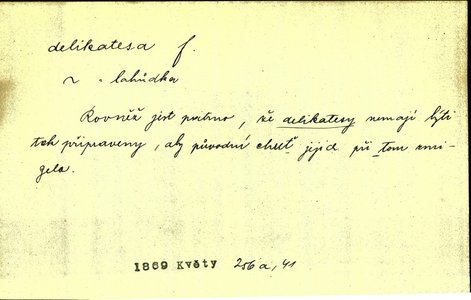 delikatesa f.
~ lahůdka
Rovněž jest patrno, že delikatesy nemají býti
tak připraveny, aby původní chuť jejich při tom smi-
zela.
1869 Květy 256a, 41